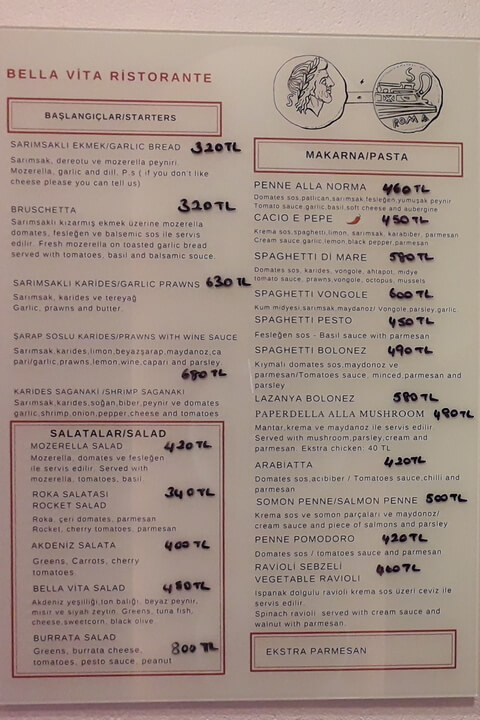 BELLA VİTA RİSTORANTE
BAŞLANGIÇLAR/STARTERS
SARIMSAKLI EKMEK/GARLIC BREAD 320TL
Sarımsak, dereotu ve mozerella peyniri
Mozerella, garlic and dill. P.s ( if you don't like
cheese please you can tell us)
BRUSCHETTA 320TL
Sarımsaklı kızarmış ekmek üzerine mozerella
domates, fesleğen ve balsemic sos ile servis
edilir. Fresh mozerella on toasted garlic bread
served with tomatoes, basil and balsamic souce.
SARIMSAKLI KARİDES/GARLIC PRAWNS 630TL
Sarımsak, karides ve tereyağ
Garlic, prawns and butter.
ŞARAP SOSLU KARİDES/PRAWNS WITH WINE SAUCE
Sarımsak,karides,limon,beyazşarap,maydanoz,ca
pari/garlic,prawns,lemon,wine,capari and parsley.
680TL
KARIDES SAGANAKİ /SHRIMP SAGANAKİ
Sarımsak,karides,soğan,biber,peynir ve domates
garlic,shrimp,onion,pepper,cheese and tomatoes
SALATALAR/SALAD
MOZERELLA SALAD 420TL
Mozerella, domates ve fesleğen
ile servis edilir. Served with
mozerella, tomatoes, basil.
ROKA SALATASI 340TL
ROCKET SALAD
Roka, çeri domates, parmesan
Rocket, cherry tomatoes, parmesan.
AKDENİZ SALATA 400TL
Greens, Carrots, cherry
tomatoes.
BELLA VITA SALAD 480TL
Akdeniz yeşilliği,ton balığı, beyaz peynir,
mısır ve siyah zeytin. Greens, tuna fish,
cheese,sweetcorn, black olive.
BURRATA SALAD 800TL
Greens, burrata cheese,
tomatoes, pesto sauce, peanut
ROMA
MAKARNA/PASTA
PENNE ALLA NORMA 460TL
Domates sos,patlıcan,sarımsak,fesleğen,yumuşak peynir
Tomato sauce,garlic,basil,soft cheese and aubergine
CACIO E PEPE 450TL
Krema sos,spaghetti,limon, sarımsak, karabiber, parmesan
Cream sauce,garlic,lemon,black pepper,parmesan
SPAGHETTI Dİ MARE 580TL
Domates sos, karides, vongole, ahtapot, midye
tomato sauce, prawns,vongole, octopus, mussels
SPAGHETTI VONGOLE 600TL
Kum midyesi,sarımsak,maydanoz/ Vongole,parsley,garlic
SPAGHETTI PESTO 450TL
Fesleğen sos - Basil sauce with parmesan
SPAGHETTI BOLONEZ 490TL
Kıymalı domates sos,maydonoz ve
parmesan/Tomatoes sauce, minced,parmesan and
parsley
LAZANYA BOLONEZ 580TL
PAPERDELLA ALLA MUSHROOM 490TL
Mantar,krema ve maydanoz ile servis edilir.
Served with mushroom,parsley,cream and
parmesan. Ekstra chicken: 40 TL
ARABIATTA 420TL
Domates sos,acıbiber / Tomatoes sauce,chilli and
parmesan
SOMON PENNE/SALMON PENNE 500TL
Krema sos ve somon parçaları ve maydonoz/
cream sauce and piece of salmons and parsley
PENNE POMODORO 420TL
Domates sos / tomatoes sauce and parmesan
RAVIOLİ SEBZELİ 460TL
VEGETABLE RAVIOLI
Ispanak dolgulu ravioli krema sos üzeri ceviz ile
servis edilir.
Spinach ravioli served with cream sauce and
walnut with parmesan.
EKSTRA PARMESAN